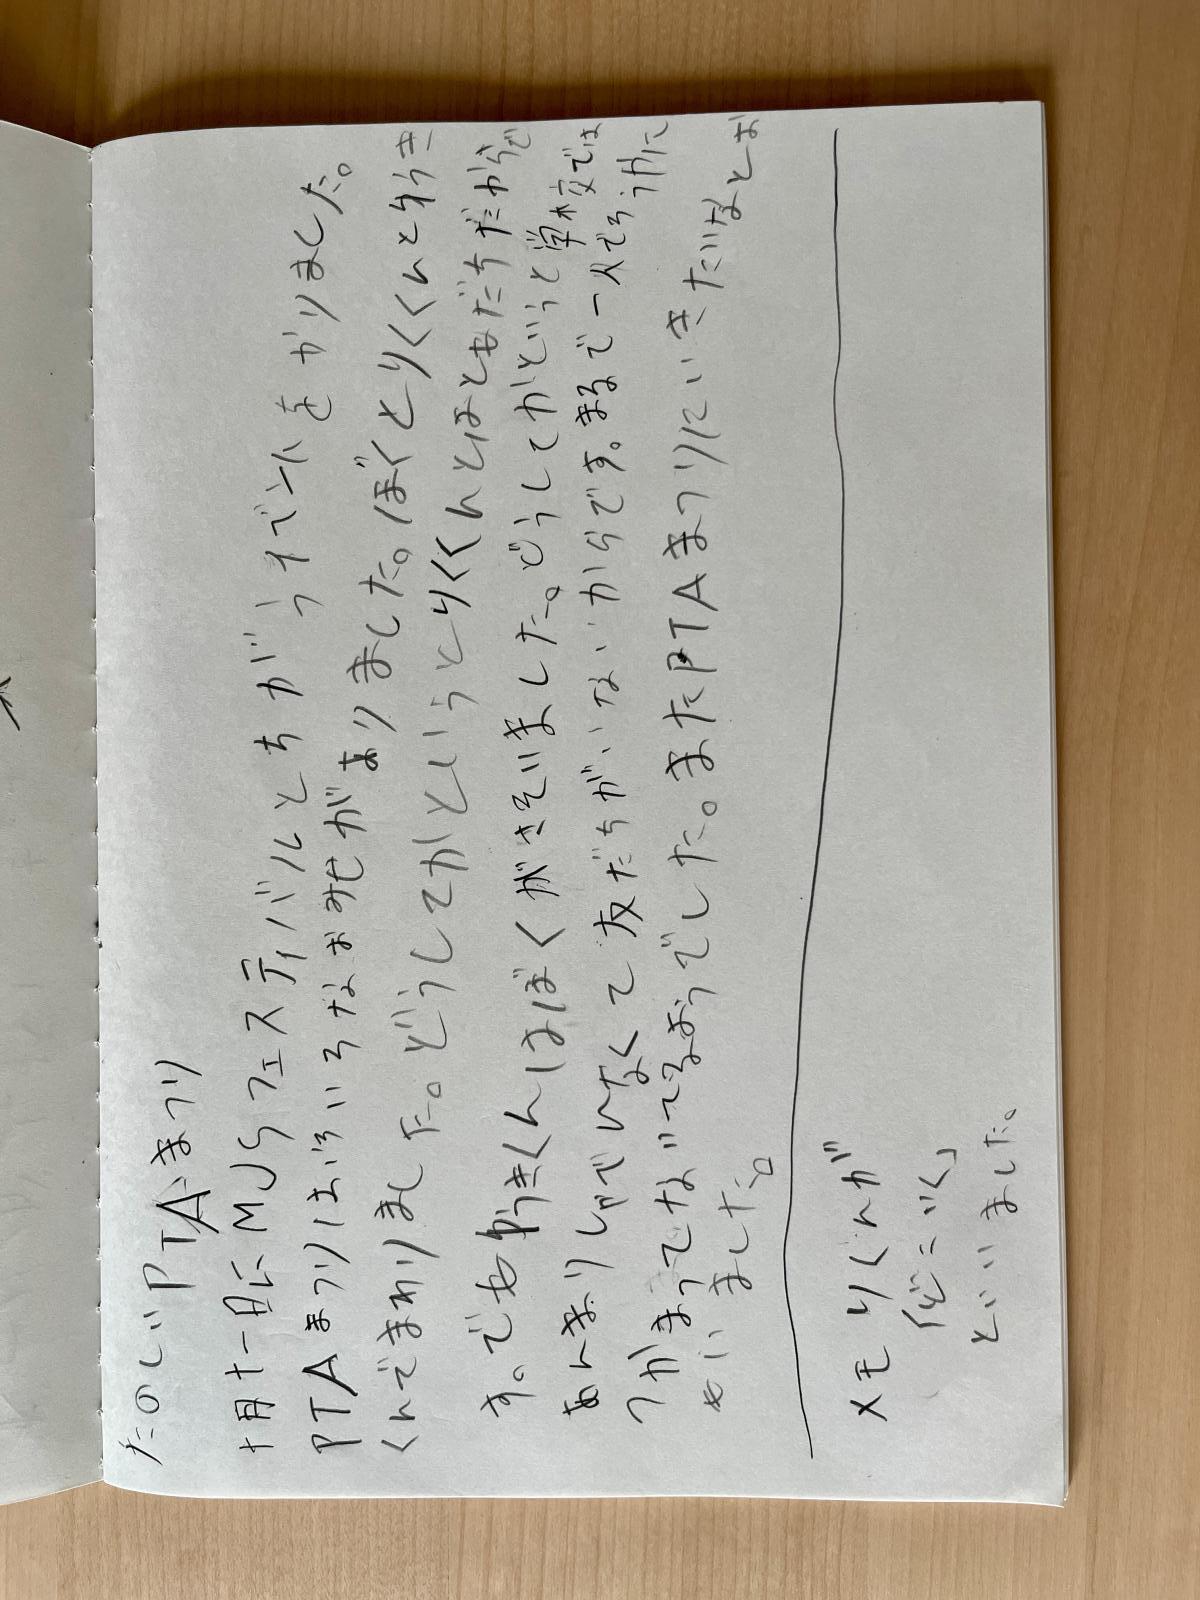 たのしいPTAまつり
十月十一日にMJSフェスティバルとちがうイベントをかりました。
PTAまつりはいろいろなおみせがありました。ぼくとりくくんとゆうき
くんでまわりました。どうしてかというとりくくんとはともだちだからで
す。でもゆうきくんはぼくがさそいました。どうしてかというと学校では
あんまりしゃべんなくて友だちがいないからです。まるで一人でろうかに
つかまってないてるようでした。またPTAまつりにいきたいなとお
もいました。
メモ りくくんが
「どこいく」
といいました。